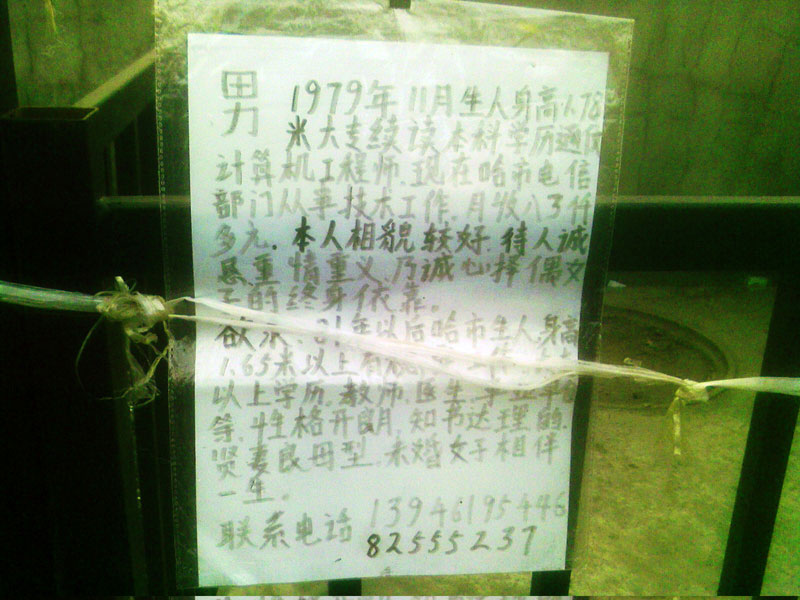 男 1979年11月生人身高1.78
米大专续读本科学历通质
计算机工程师.现在哈市电信
部门从事技术工作.月收入3仟
多元.本人相貌较好.待人诚
恳重情重义乃诚心择偶女
子的终身依靠。
欲求.81年以后哈市生人.身高
1.65米以上有
以上学历.教师.医生.
等.性格开朗.知书达理的.
贤妻良母型.未婚女子相伴
一生.
联系电话 13946195446
82555237